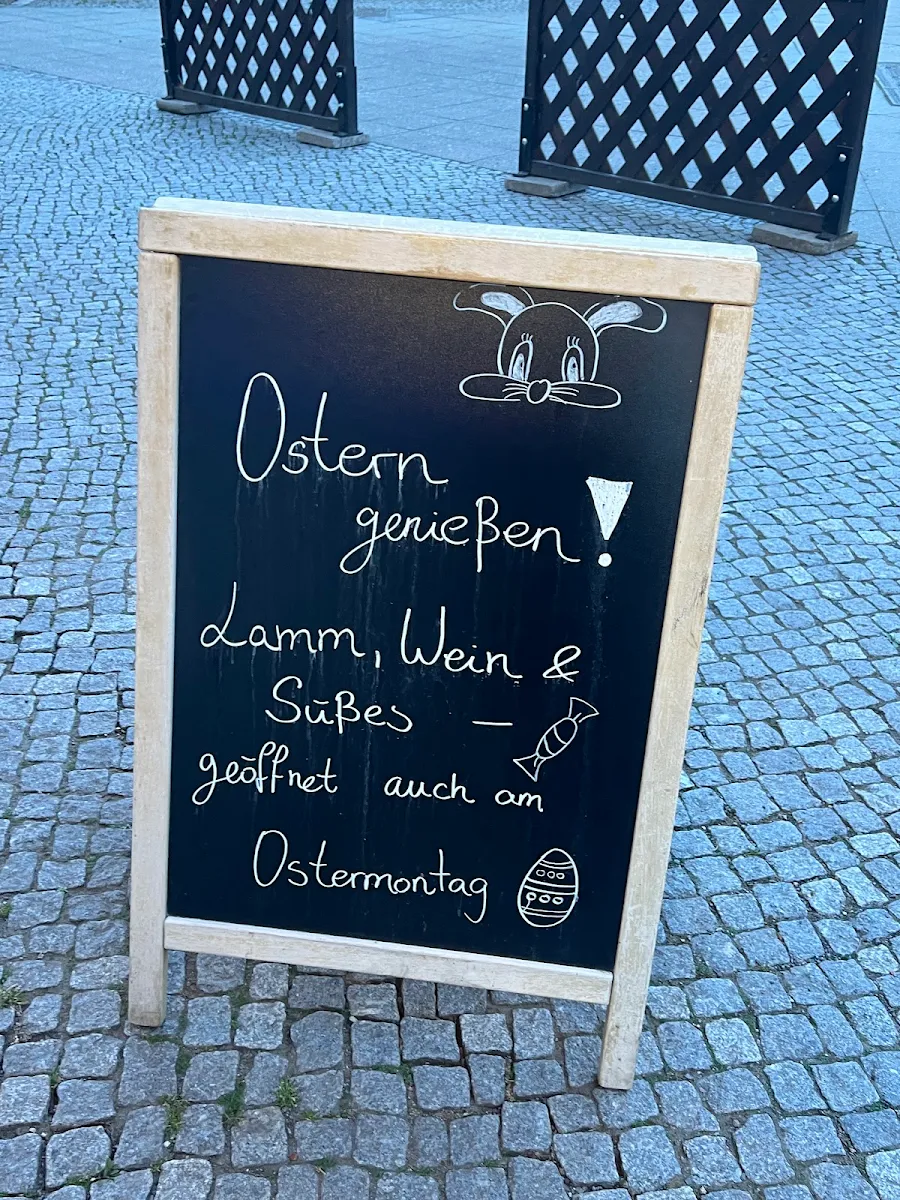 Ostern
genießen!
Lamm, Wein &
Süßes –
geöffnet auch am
Ostermontag